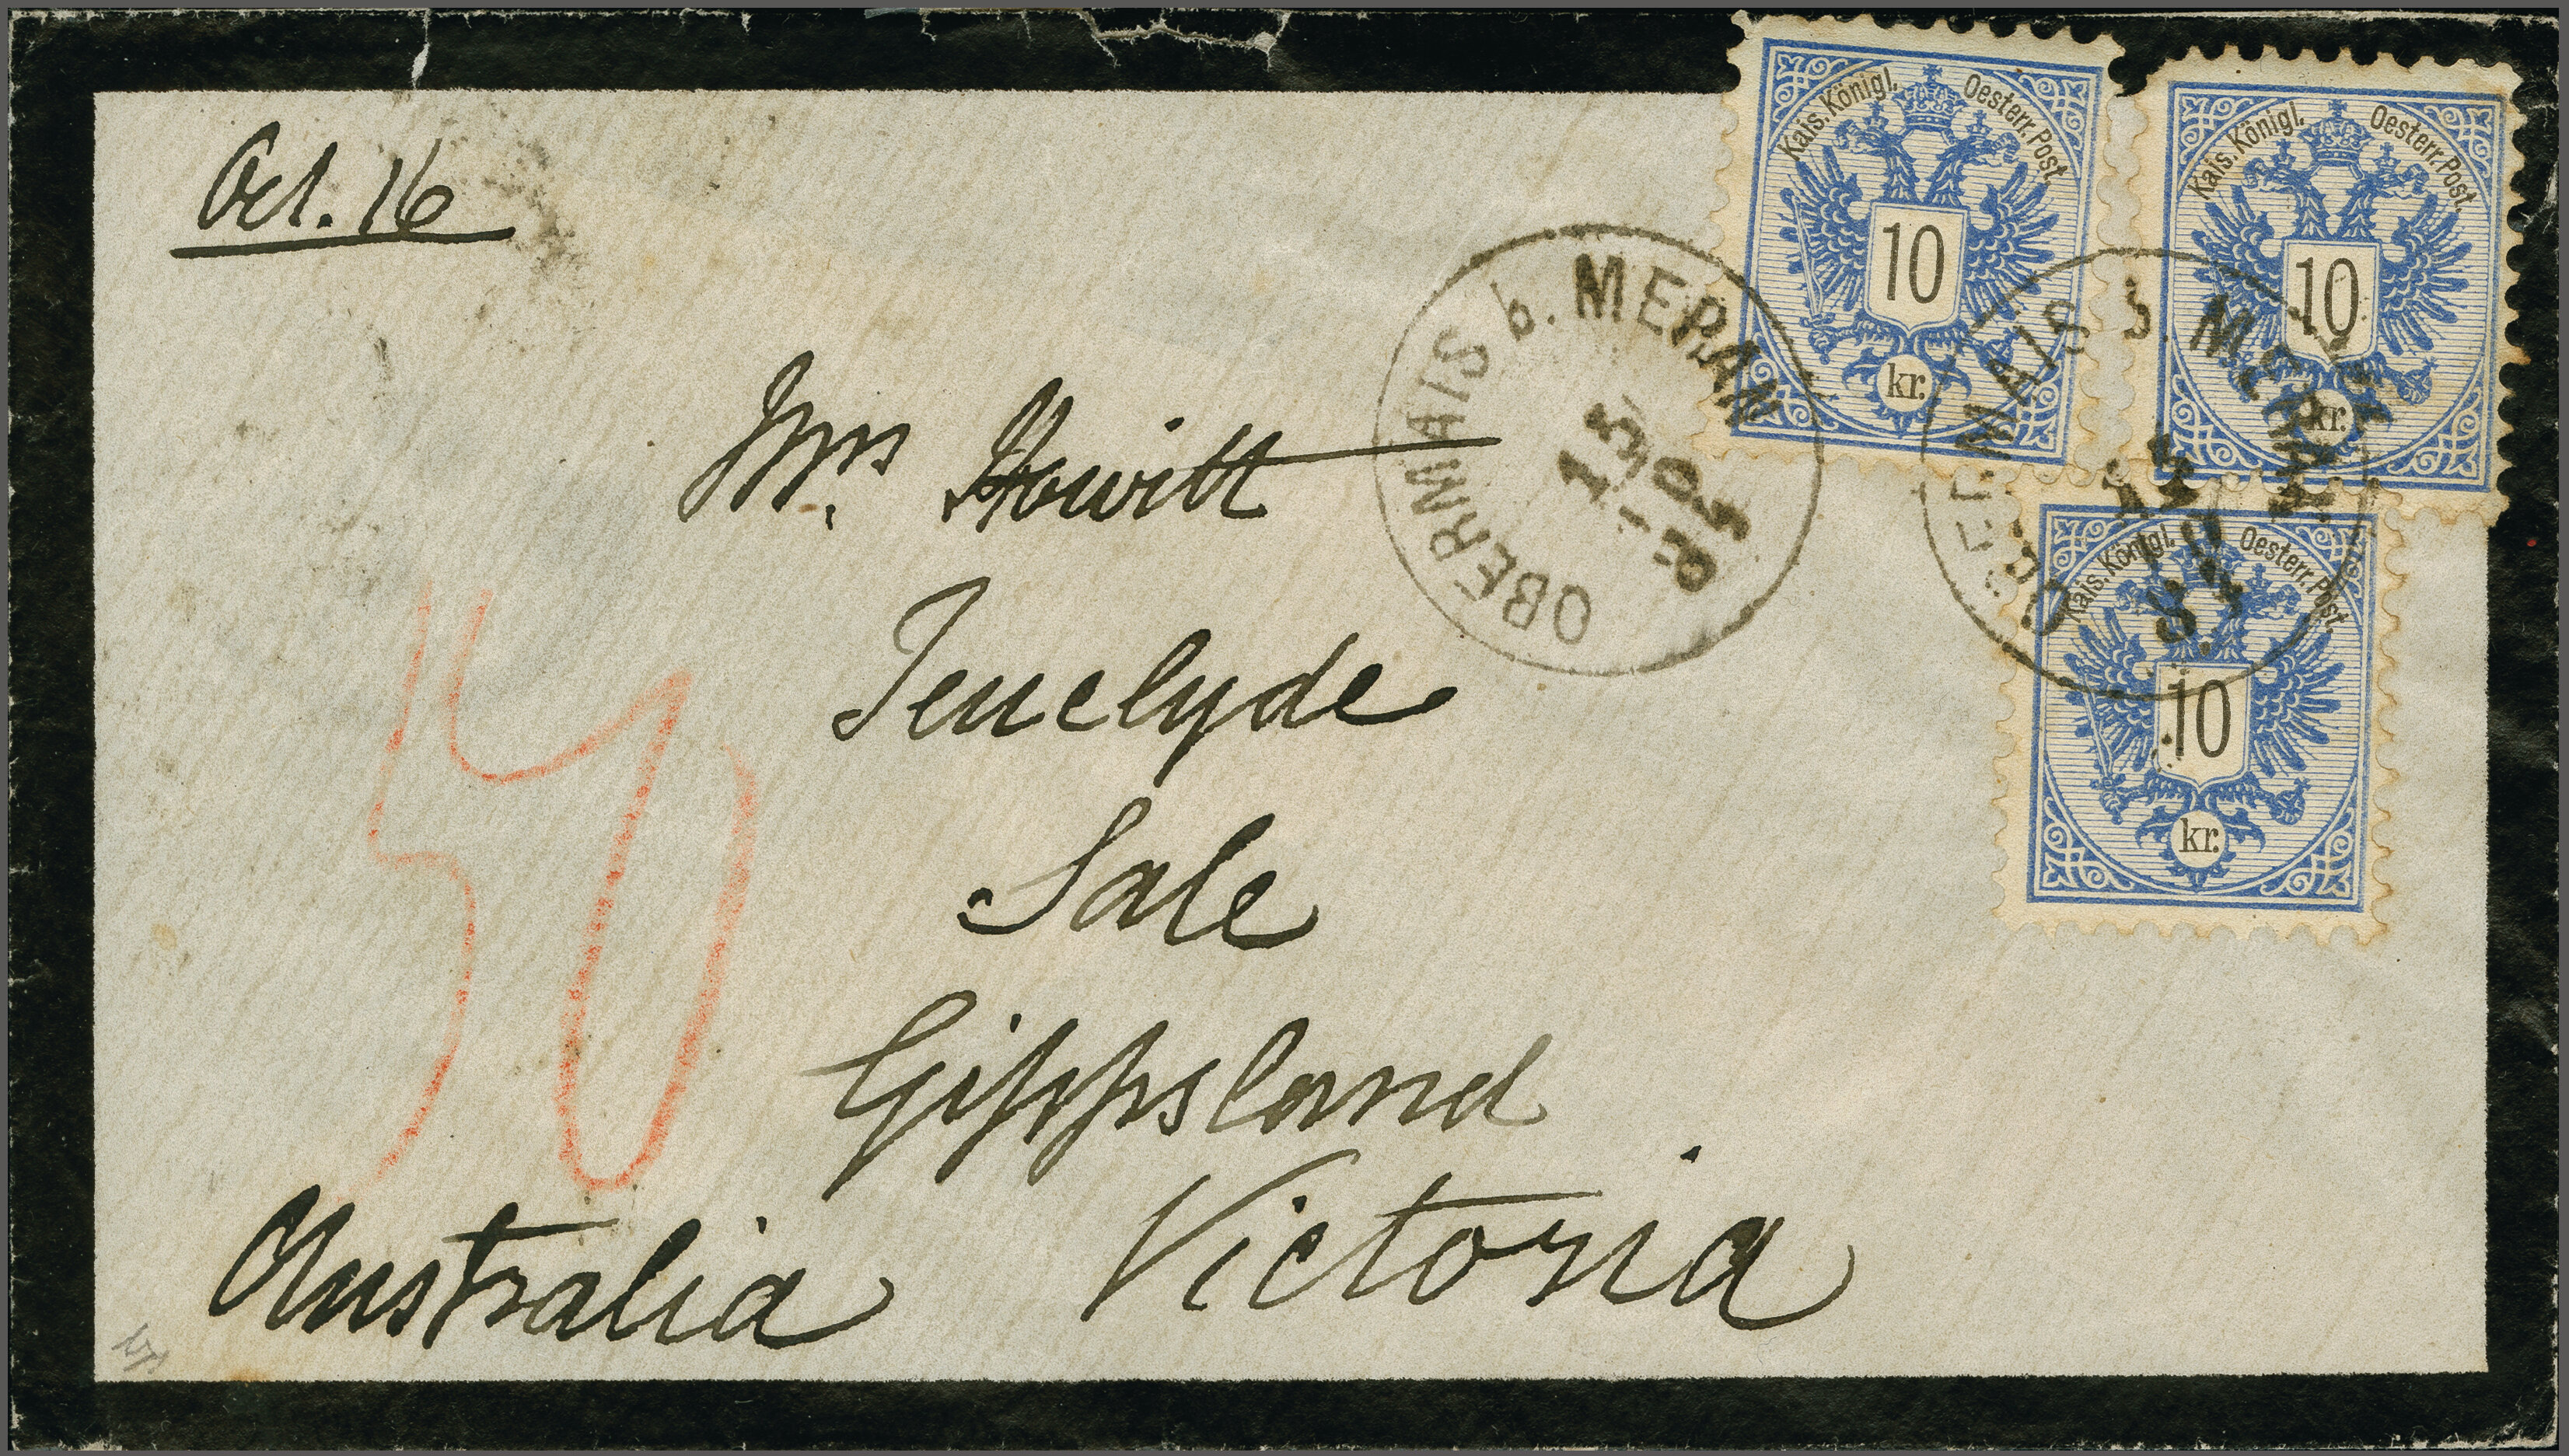 Oct. 16
Kais. Königl. Oesterr. Post.
10
kr.
Kais. Königl. Oesterr. Post.
10
kr.
Kais. Königl. Oesterr. Post.
10
kr.
OBERMAIS b. MERAN
OBERMAIS b. MERAN
Mrs. Howitt
Fernclyde
Sale
Gippsland
Victoria
Australia
50